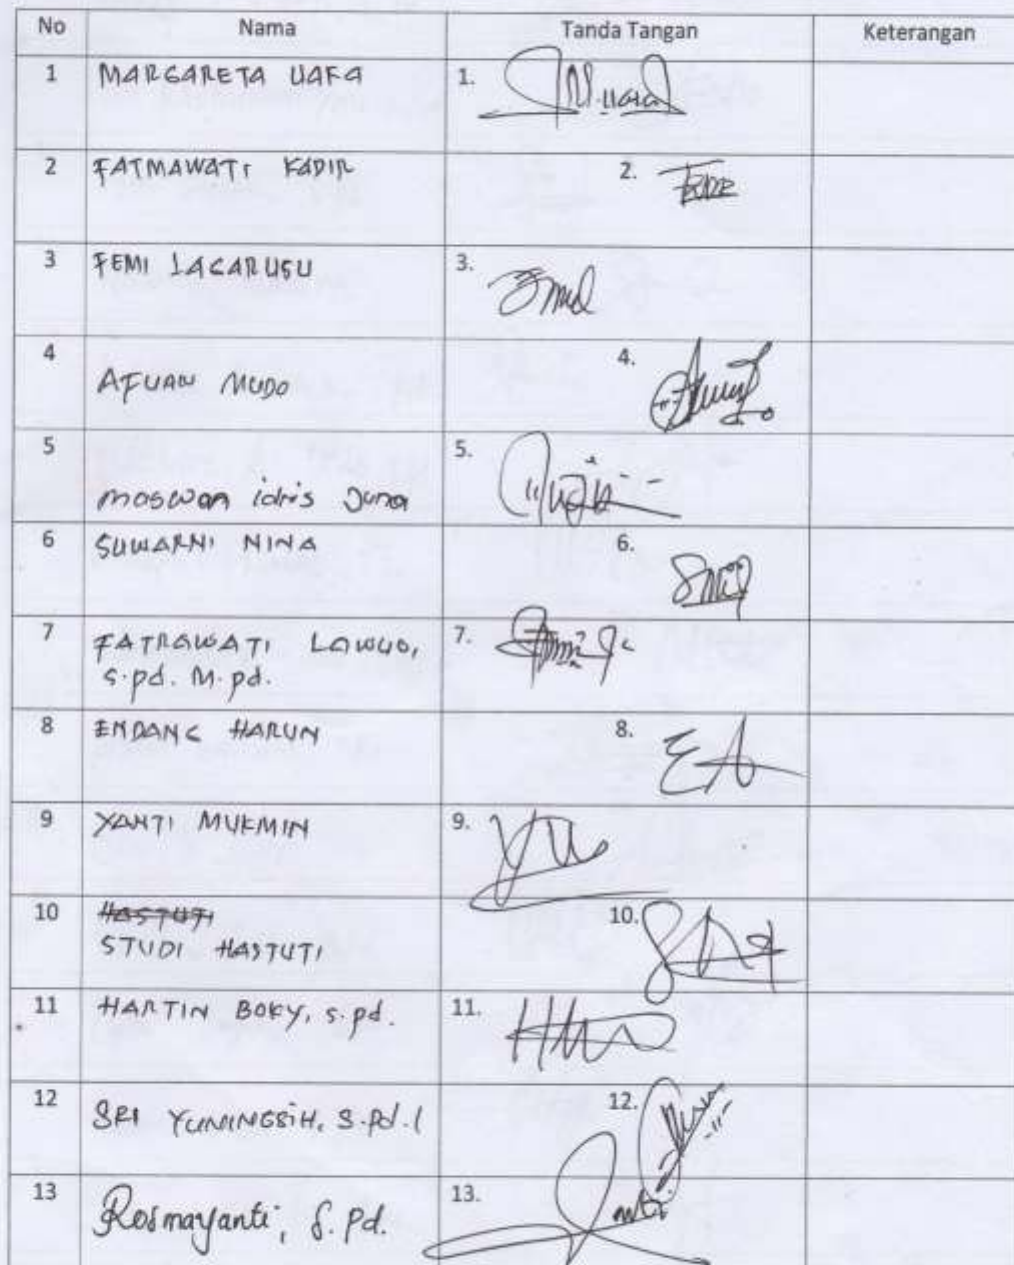 No Nama Tanda Tangan Keterangan
1 MARGARETA UAFA 1.
2 FATMAWATI KADIR 2.
3 FEMI LAGARUSU 3.
4 AFUAN MUDO 4.
5 moswan idris Juna 5.
6 SUWARNI NINA 6.
7 FATRAWATI LAWUO, 7.
S.pd. M.pd.
8 ENDANG HARUN 8.
9 YANTI MUKMIN 9.
10 HASTUTI 10.
STUDI HASTUTI
11 HARTIN BOKY, S.pd. 11.
12 SRI YUNINGSIH, S.Pd.I 12.
13 Rosmayanti, S.Pd. 13.